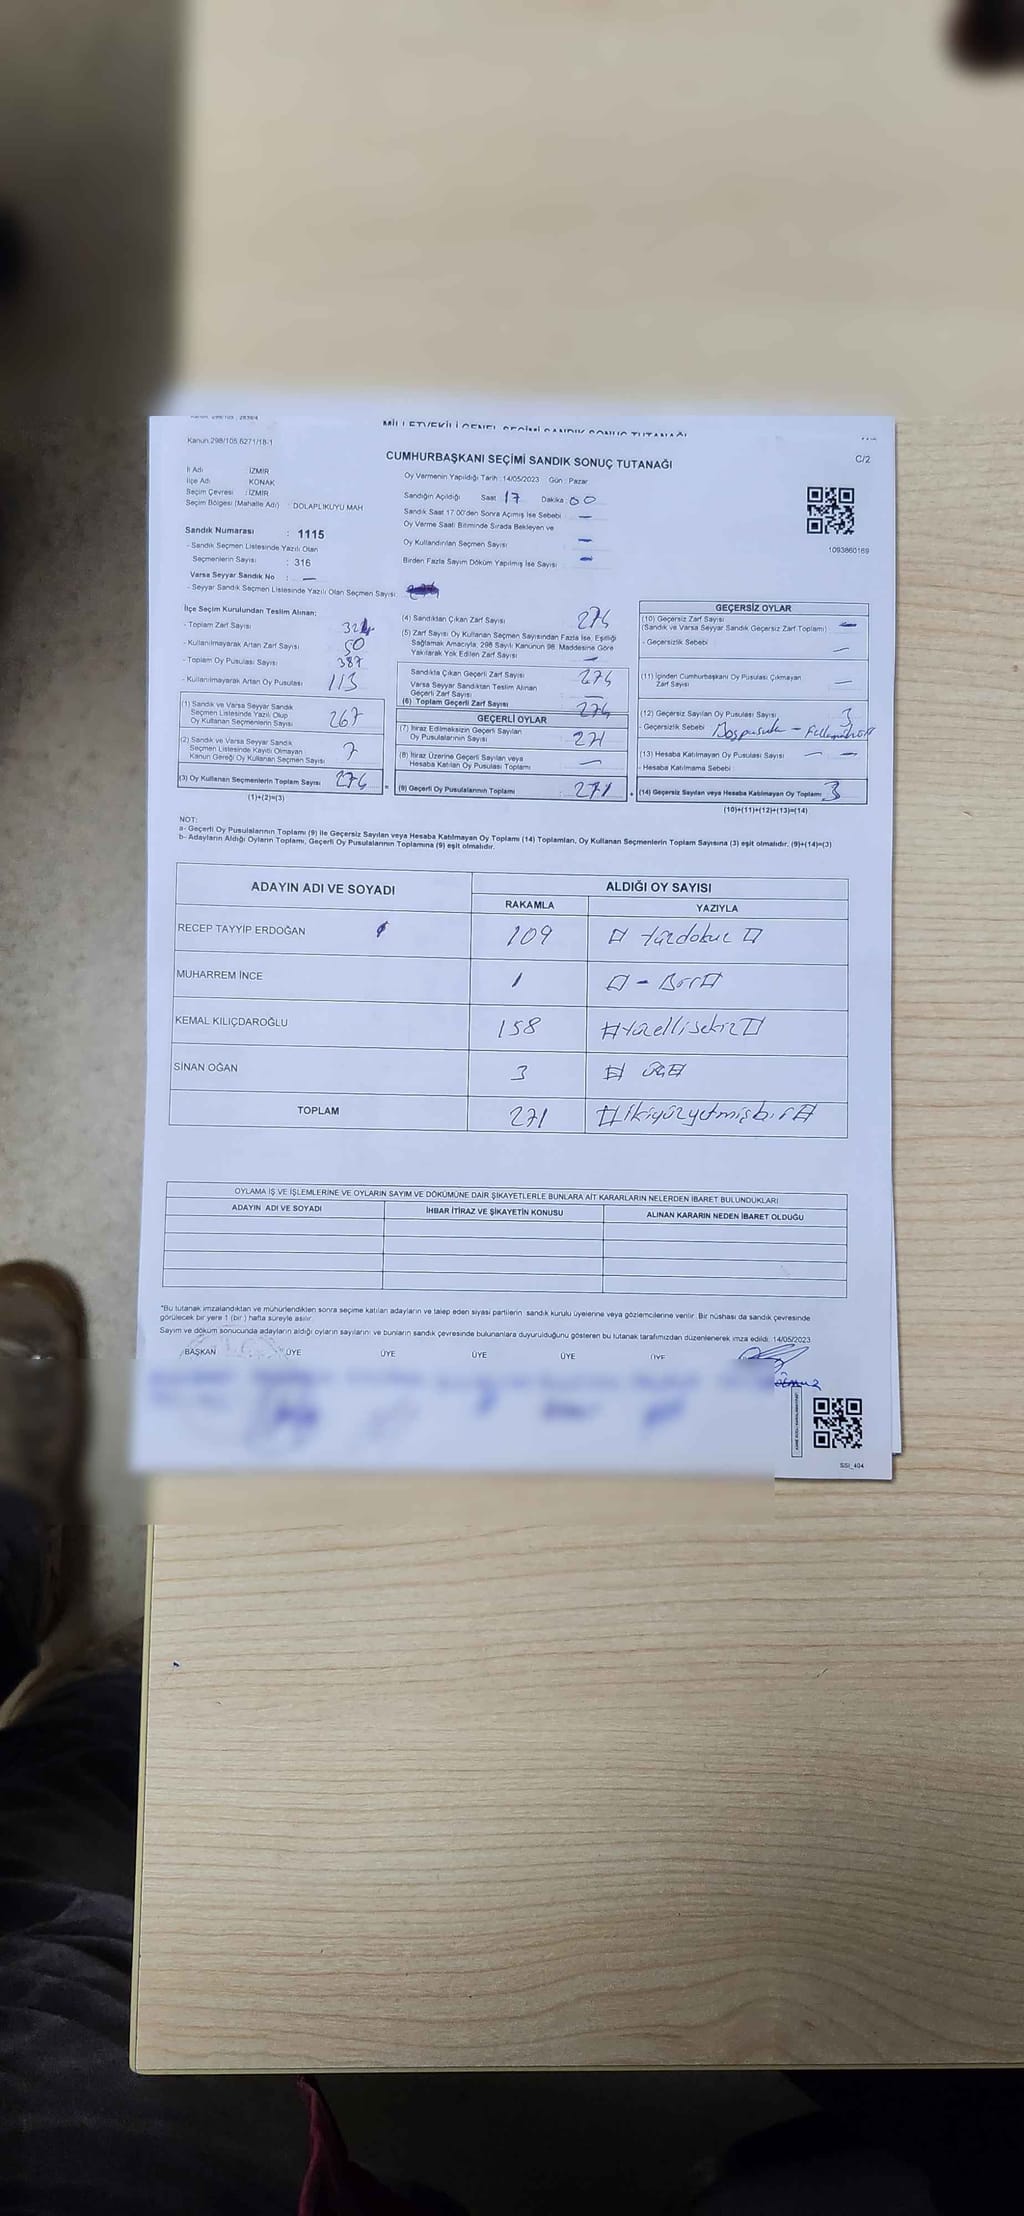 Kanun:298/105,6271/18-1
CUMHURBAŞKANI SEÇİMİ SANDIK SONUÇ TUTANAĞI
C/2
İl Adı : İZMİR
İlçe Adı : KONAK
Seçim Çevresi : İZMİR
Seçim Bölgesi (Mahalle Adı) : DOLAPLIKUYU MAH
Oy Vermenin Yapıldığı Tarih : 14/05/2023 Gün : Pazar
Sandığın Açıldığı Saat : 17 Dakika : 00
Sandık Saat 17.00'den Sonra Açılmış İse Sebebi : —
Oy Verme Saati Bitiminde Sırada Bekleyen ve
Oy Kullandırılan Seçmen Sayısı : —
Birden Fazla Sayım Döküm Yapılmış İse Sayısı : —
1093860169
Sandık Numarası : 1115
- Sandık Seçmen Listesinde Yazılı Olan
Seçmenlerin Sayısı : 316
Varsa Seyyar Sandık No : —
- Seyyar Sandık Seçmen Listesinde Yazılı Olan Seçmen Sayısı :
İlçe Seçim Kurulundan Teslim Alınan:
- Toplam Zarf Sayısı : 324
- Kullanılmayarak Artan Zarf Sayısı : 50
- Toplam Oy Pusulası Sayısı : 387
- Kullanılmayarak Artan Oy Pusulası : 113
(1) Sandık ve Varsa Seyyar Sandık
Seçmen Listesinde Yazılı Olup
Oy Kullanan Seçmenlerin Sayısı 267
(2) Sandık ve Varsa Seyyar Sandık
Seçmen Listesinde Kayıtlı Olmayan
Kanun Gereği Oy Kullanan Seçmen Sayısı 7
(3) Oy Kullanan Seçmenlerin Toplam Sayısı 274
(1)+(2)=(3)
(4) Sandıktan Çıkan Zarf Sayısı 274
(5) Zarf Sayısı Oy Kullanan Seçmen Sayısından Fazla İse, Eşitliği
Sağlamak Amacıyla, 298 Sayılı Kanunun 98. Maddesine Göre
Yakılarak Yok Edilen Zarf Sayısı —
Sandıkta Çıkan Geçerli Zarf Sayısı 274
Varsa Seyyar Sandıktan Teslim Alınan
Geçerli Zarf Sayısı —
(6) Toplam Geçerli Zarf Sayısı 274
GEÇERLİ OYLAR
(7) İtiraz Edilmeksizin Geçerli Sayılan
Oy Pusulalarının Sayısı 271
(8) İtiraz Üzerine Geçerli Sayılan veya
Hesaba Katılan Oy Pusulası Toplamı —
(9) Geçerli Oy Pusulalarının Toplamı 271
GEÇERSİZ OYLAR
(10) Geçersiz Zarf Sayısı
(Sandık ve Varsa Seyyar Sandık Geçersiz Zarf Toplamı) —
- Geçersizlik Sebebi —
(11) İçinden Cumhurbaşkanı Oy Pusulası Çıkmayan
Zarf Sayısı —
(12) Geçersiz Sayılan Oy Pusulası Sayısı 3
- Geçersizlik Sebebi
(13) Hesaba Katılmayan Oy Pusulası Sayısı —
- Hesaba Katılmama Sebebi :
(14) Geçersiz Sayılan veya Hesaba Katılmayan Oy Toplamı 3
(10)+(11)+(12)+(13)=(14)
NOT:
a- Geçerli Oy Pusulalarının Toplamı (9) ile Geçersiz Sayılan veya Hesaba Katılmayan Oy Toplamı (14) Toplamları, Oy Kullanan Seçmenlerin Toplam Sayısına (3) eşit olmalıdır. (9)+(14)=(3)
b- Adayların Aldığı Oyların Toplamı, Geçerli Oy Pusulalarının Toplamına (9) eşit olmalıdır.
ADAYIN ADI VE SOYADI ALDIĞI OY SAYISI
RAKAMLA YAZIYLA
RECEP TAYYİP ERDOĞAN 109 Yüzdokuz
MUHARREM İNCE 1 - Bir
KEMAL KILIÇDAROĞLU 158 #Yüzellisekiz
SİNAN OĞAN 3 # üç#
TOPLAM 271 #ikiyüzyetmişbir#
OYLAMA İŞ VE İŞLEMLERİNE VE OYLARIN SAYIM VE DÖKÜMÜNE DAİR ŞİKAYETLERLE BUNLARA AİT KARARLARIN NELERDEN İBARET BULUNDUKLARI
ADAYIN ADI VE SOYADI İHBAR İTİRAZ VE ŞİKAYETİN KONUSU ALINAN KARARIN NEDEN İBARET OLDUĞU
"Bu tutanak imzalandıktan ve mühürlendikten sonra seçime katılan adayların ve talep eden siyasi partilerin sandık kurulu üyelerine veya gözlemcilerine verilir. Bir nüshası da sandık çevresinde
görülecek bir yere 1 (bir ) hafta süreyle asılır.
Sayım ve döküm sonucunda adayların aldığı oyların sayılarını ve bunların sandık çevresinde bulunanlara duyurulduğunu gösteren bu tutanak tarafımızdan düzenlenerek imza edildi. 14/05/2023
BAŞKAN ÜYE ÜYE ÜYE ÜYE ÜYE
SSI_404